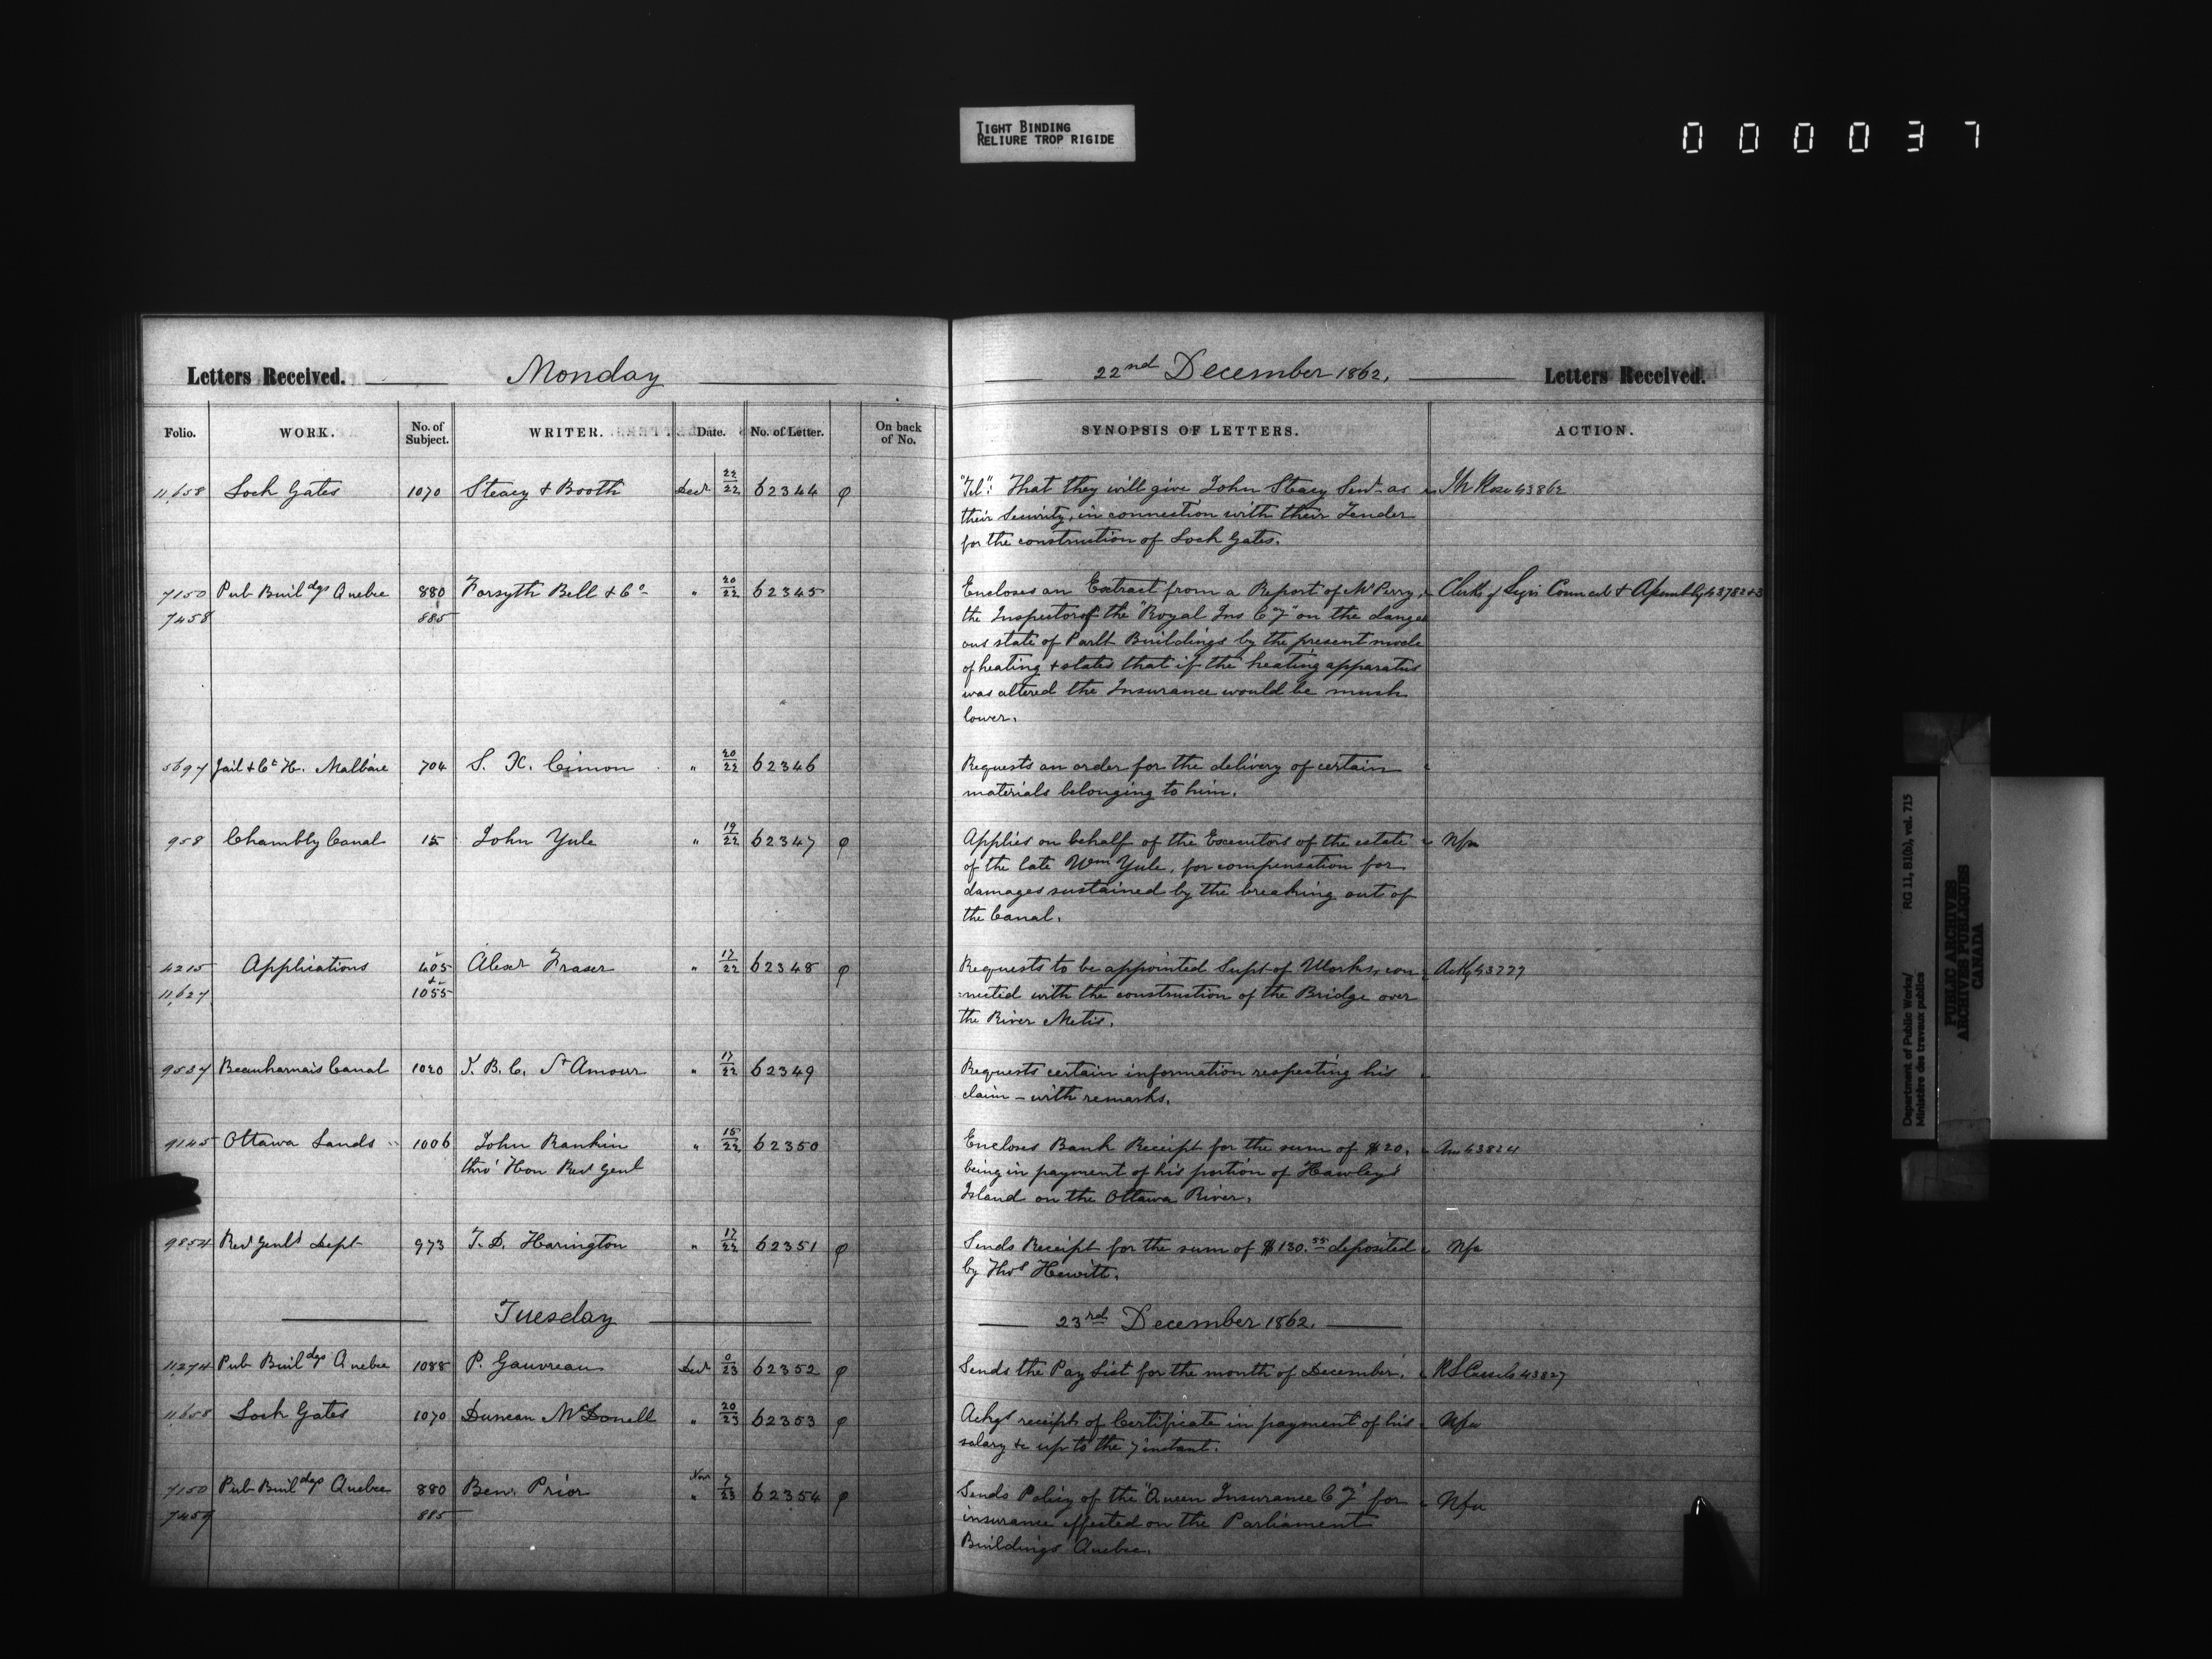 TIGHT BINDING
RELIURE TROP RIGIDE
000037
Letters Received. Monday 22nd December 1862. Letters Received.
Folio. WORK. No. of Subject. WRITER. Date. No. of Letter. On back of No. SYNOPSIS OF LETTERS. ACTION.
11,658 Lock Gates 1070 Steacy & Booth Decr 22/22 62344 φ "Tel": That they will give John Steacy Senr as
their Security, in connection with their Tender
for the construction of Lock Gates.
7150 Pub Buildgs Quebec 880 Forsyth Bell & Co " 20/22 62345 Encloses an Extract from a Report of Mr Perry, Clerks of Legis Council & Assembly 43782+3
7458 885 the Inspector of the "Royal Ins Cy" on the danger
ous state of Parlt Buildings by the present mode
of heating & states that if the heating apparatus
was altered the Insurance would be much
lower.
5697 Jail & Ct H. Malbaie 704 S. X. Cimon " 20/22 62346 Requests an order for the delivery of certain
materials belonging to him.
958 Chambly Canal 15 John Yule " 19/22 62347 φ Applies on behalf of the Executors of the estate Nfa
of the late Wm Yule, for compensation for
damages sustained by the breaking out of
the Canal.
4215 Applications 405 Alexr Fraser " 17/22 62348 φ Requests to be appointed Supt of Works, con Ackg 43777
11,627 & 1055 nected with the construction of the Bridge over
the River Metis.
9537 Beauharnais Canal 1020 J. B. C. St Amour " 17/22 62349 Requests certain information respecting his
claim - with remarks.
9145 Ottawa Lands 1006 John Rankin " 15/22 62350 Encloses Bank Receipt for the sum of $20. Ans 43824
thro' Hon Recr Genl being in payment of his portion of Hawley's
Island on the Ottawa River.
9854 Recr Genls Dept 973 T. D. Harington " 17/22 62351 φ Sends Receipt for the sum of $130.55 deposited Nfa
by Thos Hewitt.
Tuesday 23rd December 1862.
11274 Pub Buildgs Quebec 1088 P. Gauvreau Decr 0/23 62352 φ Sends the Pay List for the month of December. R S Cassels 43827
11,658 Lock Gates 1070 Duncan McDonell " 20/23 62353 φ Ackgs receipt of Certificate in payment of his Nfa
salary &c up to the 7 instant.
7150 Pub Buildgs Quebec 880 Benj. Prior Nov " 7/23 62354 φ Sends Policy of the "Queen Insurance Cy" for Nfa
7459 885 insurance effected on the Parliament
Buildings Quebec.
Department of Public Works/ RG 11, B1(b), vol. 715
Ministère des travaux publics
PUBLIC ARCHIVES
ARCHIVES PUBLIQUES
CANADA